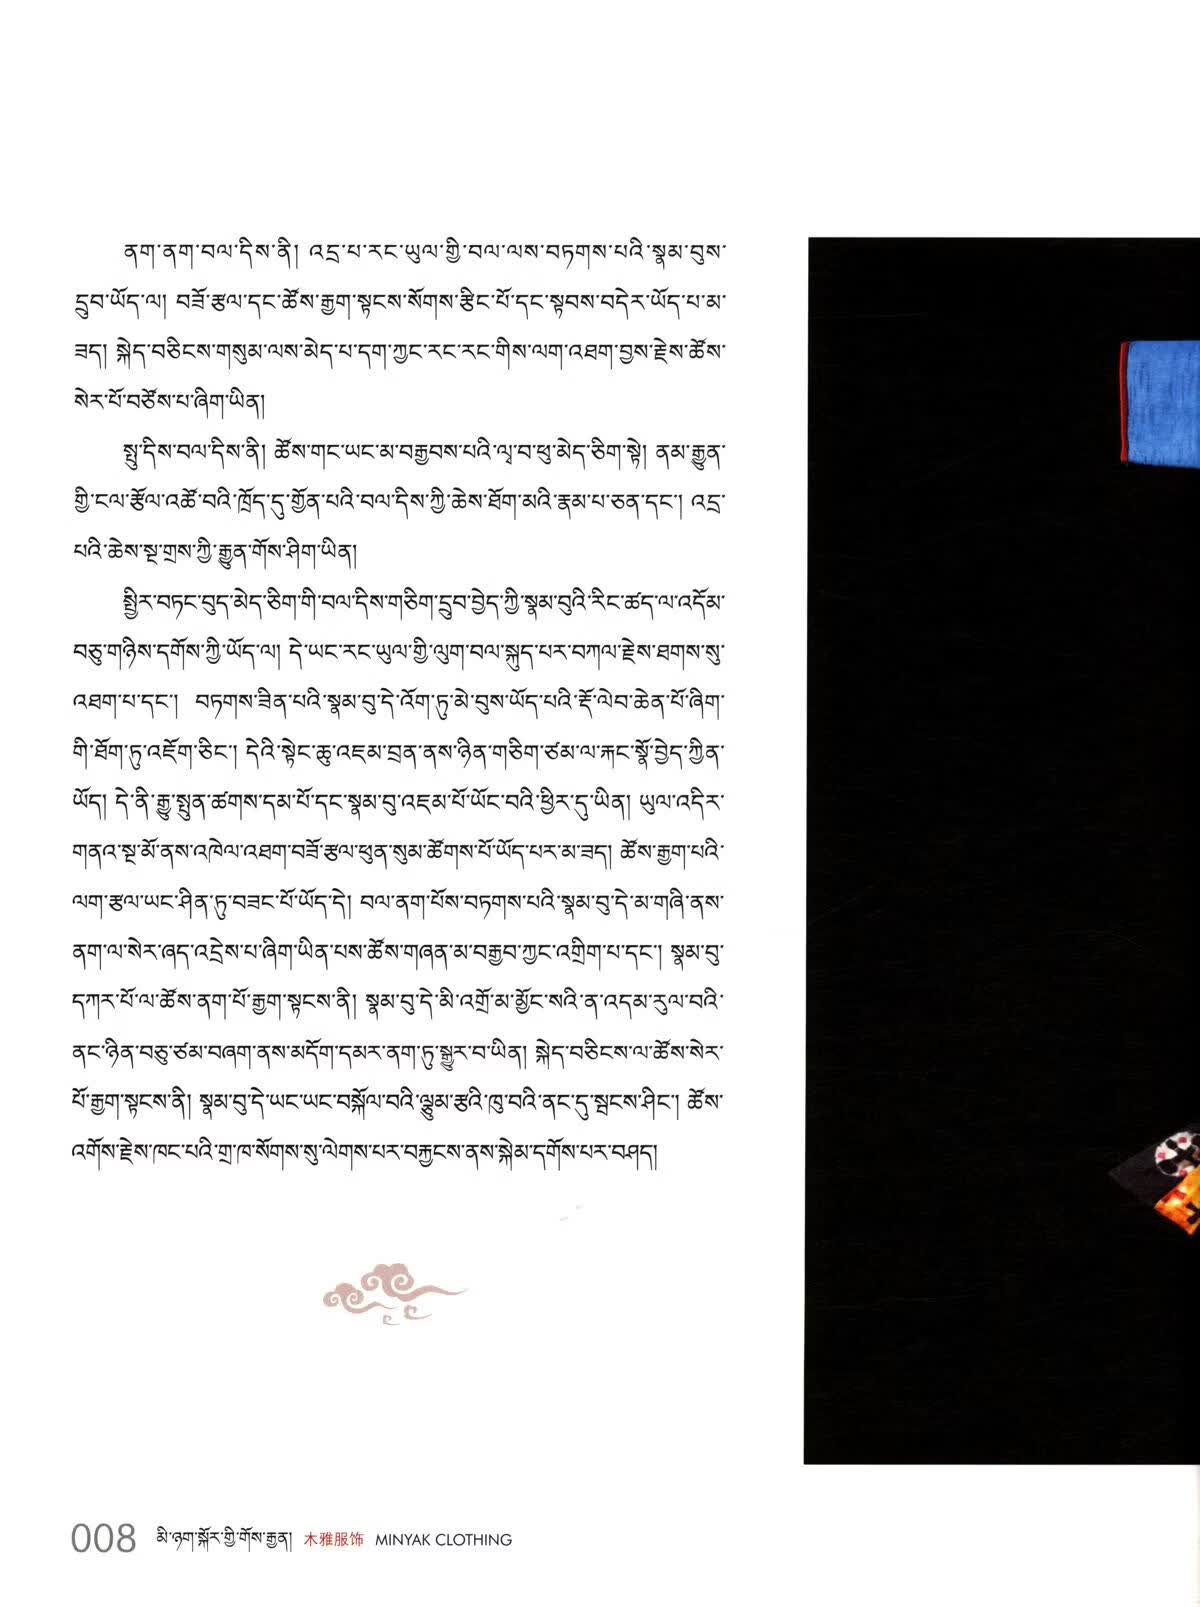 ནག་ནག་བལ་དིས་ནི། འདྲ་པ་རང་ཡུལ་གྱི་བལ་ལས་བཏགས་པའི་སྣམ་བུས་
དྲུབ་ཡོད་ལ། བཟོ་རྩལ་དང་ཚོས་རྒྱག་སྟངས་སོགས་རྩིང་པོ་དང་སྟབས་བདེར་ཡོད་པ་མ་
ཟད། སྐེད་བཅིངས་གསུམ་ལས་མེད་པ་དག་ཀྱང་རང་རང་གིས་ལག་འཐག་བྱས་རྗེས་ཚོས་
སེར་པོ་བཙོས་པ་ཞིག་ཡིན།
སྤུ་དིས་བལ་དིས་ནི། ཚོས་གང་ཡང་མ་བརྒྱབས་པའི་ལྭ་བ་ཕུ་མེད་ཅིག་སྟེ། ནམ་རྒྱུན་
གྱི་ངལ་རྩོལ་འཚོ་བའི་ཁྲོད་དུ་གྱོན་པའི་བལ་དིས་ཀྱི་ཆེས་ཐོག་མའི་རྣམ་པ་ཅན་དང་། འདྲ་
པའི་ཆེས་སྔ་གྲས་ཀྱི་རྒྱུན་གོས་ཤིག་ཡིན།
སྤྱིར་བཏང་བུད་མེད་ཅིག་གི་བལ་དིས་གཅིག་དྲུབ་བྱེད་ཀྱི་སྣམ་བུའི་རིང་ཚད་ལ་འདོམ་
བཅུ་གཉིས་དགོས་ཀྱི་ཡོད་ལ། དེ་ཡང་རང་ཡུལ་གྱི་ལུག་བལ་སྐུད་པར་བཀལ་རྗེས་ཐགས་སུ་
འཐག་པ་དང་། བཏགས་ཟིན་པའི་སྣམ་བུ་དེ་འོག་ཏུ་མེ་བུས་ཡོད་པའི་རྡོ་ལེབ་ཆེན་པོ་ཞིག་
གི་ཐོག་ཏུ་འཇོག་ཅིང་། དེའི་སྟེང་ཆུ་འཇམ་བྲན་ནས་ཉིན་གཅིག་ཙམ་ལ་རྐང་སྣོ་བྱེད་ཀྱིན་
ཡོད། དེ་ནི་རྒྱུ་སྤུན་ཚགས་དམ་པོ་དང་སྣམ་བུ་འཇམ་པོ་ཡོང་བའི་ཕྱིར་དུ་ཡིན། ཡུལ་འདིར་
གནའ་སྔ་མོ་ནས་འཁེལ་འཐག་བཟོ་རྩལ་ཕུན་སུམ་ཚོགས་པོ་ཡོད་པར་མ་ཟད། ཚོས་རྒྱག་པའི་
ལག་རྩལ་ཡང་ཤིན་ཏུ་བཟང་པོ་ཡོད་དེ། བལ་ནག་པོས་བཏགས་པའི་སྣམ་བུ་དེ་མ་གཞི་ནས་
ནག་ལ་སེར་ཞད་འདྲེས་པ་ཞིག་ཡིན་པས་ཚོས་གཞན་མ་བརྒྱབ་ཀྱང་འགྲིག་པ་དང་། སྣམ་བུ་
དཀར་པོ་ལ་ཚོས་ནག་པོ་རྒྱག་སྟངས་ནི། སྣམ་བུ་དེ་མི་འགྲོ་མ་མྱོང་སའི་ན་འདམ་རུལ་བའི་
ནང་ཉིན་བཅུ་ཙམ་བཞག་ནས་མདོག་དམར་ནག་ཏུ་སྒྱུར་བ་ཡིན། སྐེད་བཅིངས་ལ་ཚོས་སེར་
པོ་རྒྱག་སྟངས་ནི། སྣམ་བུ་དེ་ཡང་ཡང་བསྐོལ་བའི་ལྕུམ་རྩའི་ཁུ་བའི་ནང་དུ་སྦངས་ཤིང་། ཚོས་
འགོས་རྗེས་ཁང་པའི་གྲ་ཁ་སོགས་སུ་ལེགས་པར་བརྐྱངས་ནས་སྐེམ་དགོས་པར་བཤད།
008 མི་ཉག་སྐོར་གྱི་གོས་རྒྱན། 木雅服饰 MINYAK CLOTHING